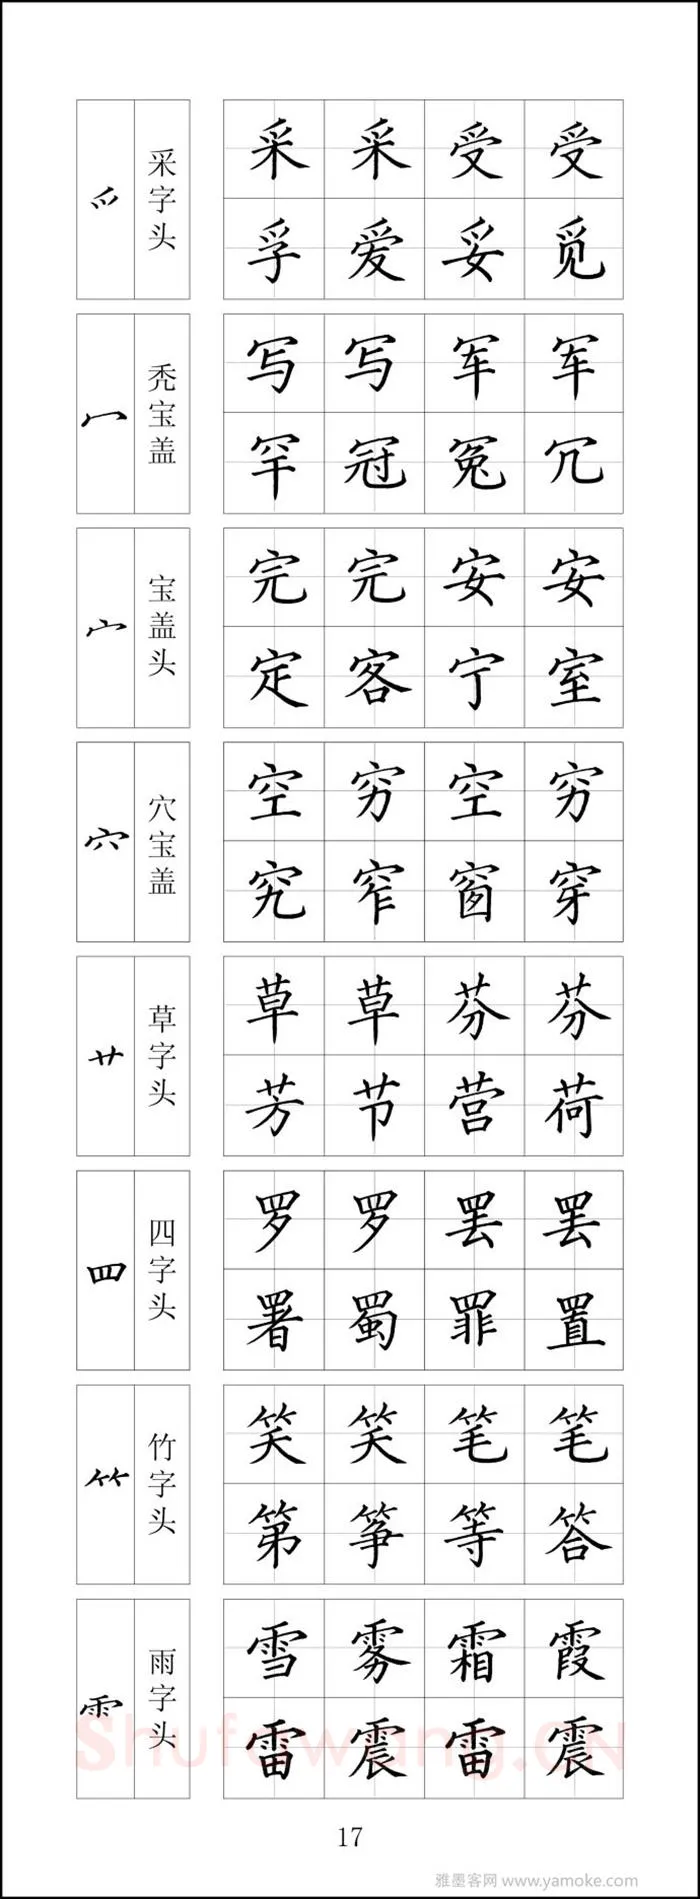 爫
采字头
采 采 受 受
孚 爱 妥 觅
冖
秃宝盖
写 写 军 军
罕 冠 冤 冗
宀
宝盖头
完 完 安 安
定 客 宁 室
穴
穴宝盖
空 穷 空 穷
究 窄 窗 穿
艹
草字头
草 草 芬 芬
芳 节 营 荷
罒
四字头
罗 罗 罢 罢
署 蜀 罪 置
⺮
竹字头
笑 笑 笔 笔
第 筝 等 答
⻗
雨字头
雪 雾 霜 霞
雷 震 雷 震
Shufawang.CN
17
雅墨客网 www.yamoke.com